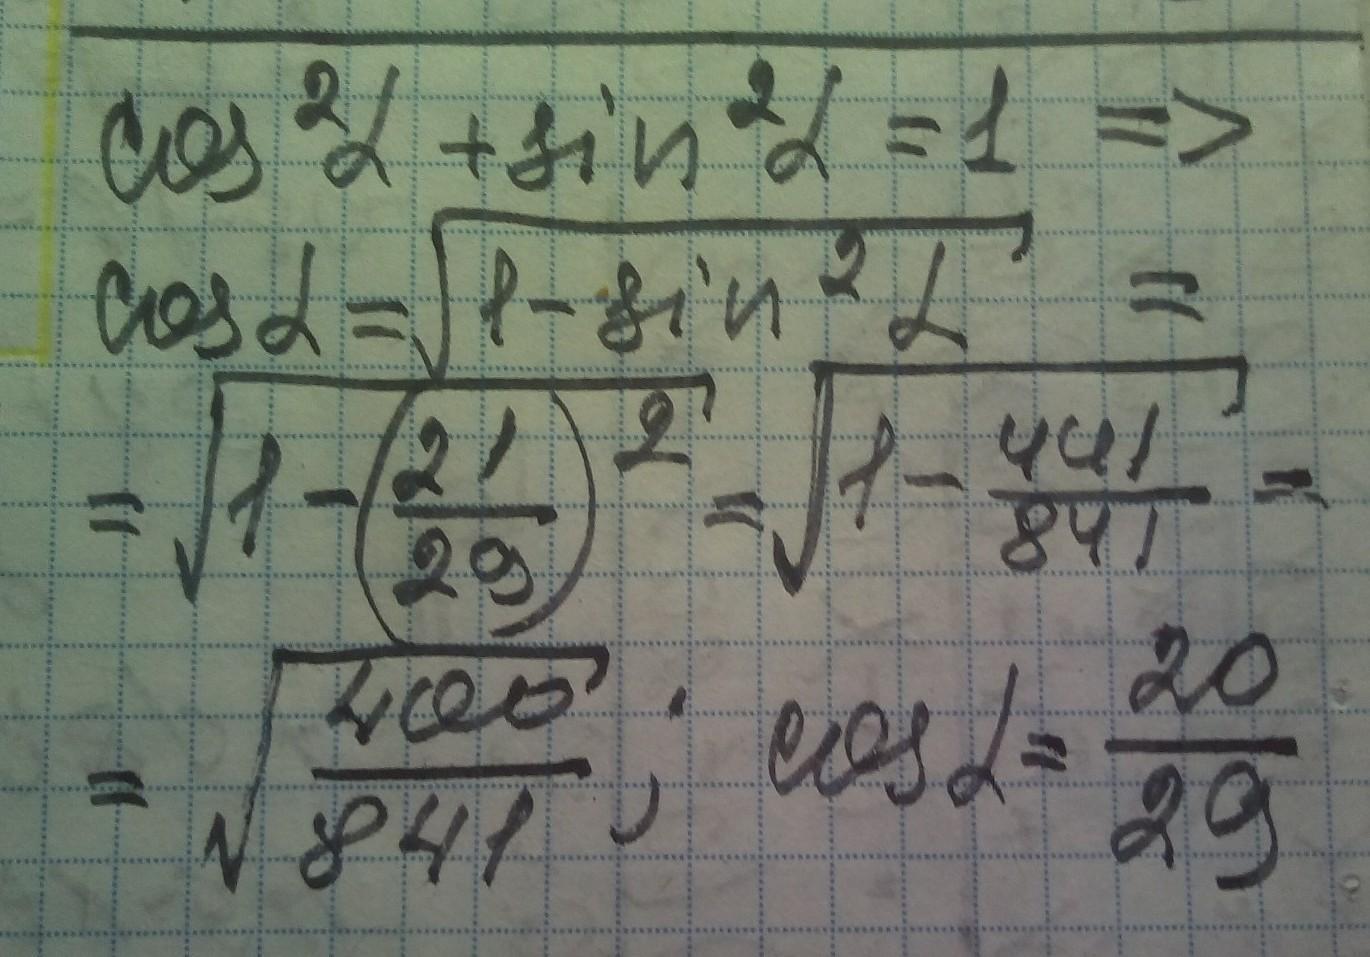 cos²α + sin²α = 1 =>
cosα = √(1 - sin²α) =
= √(1 - (21/29)²) = √(1 - 441/841) =
= √(400/841) ; cosα = 20/29